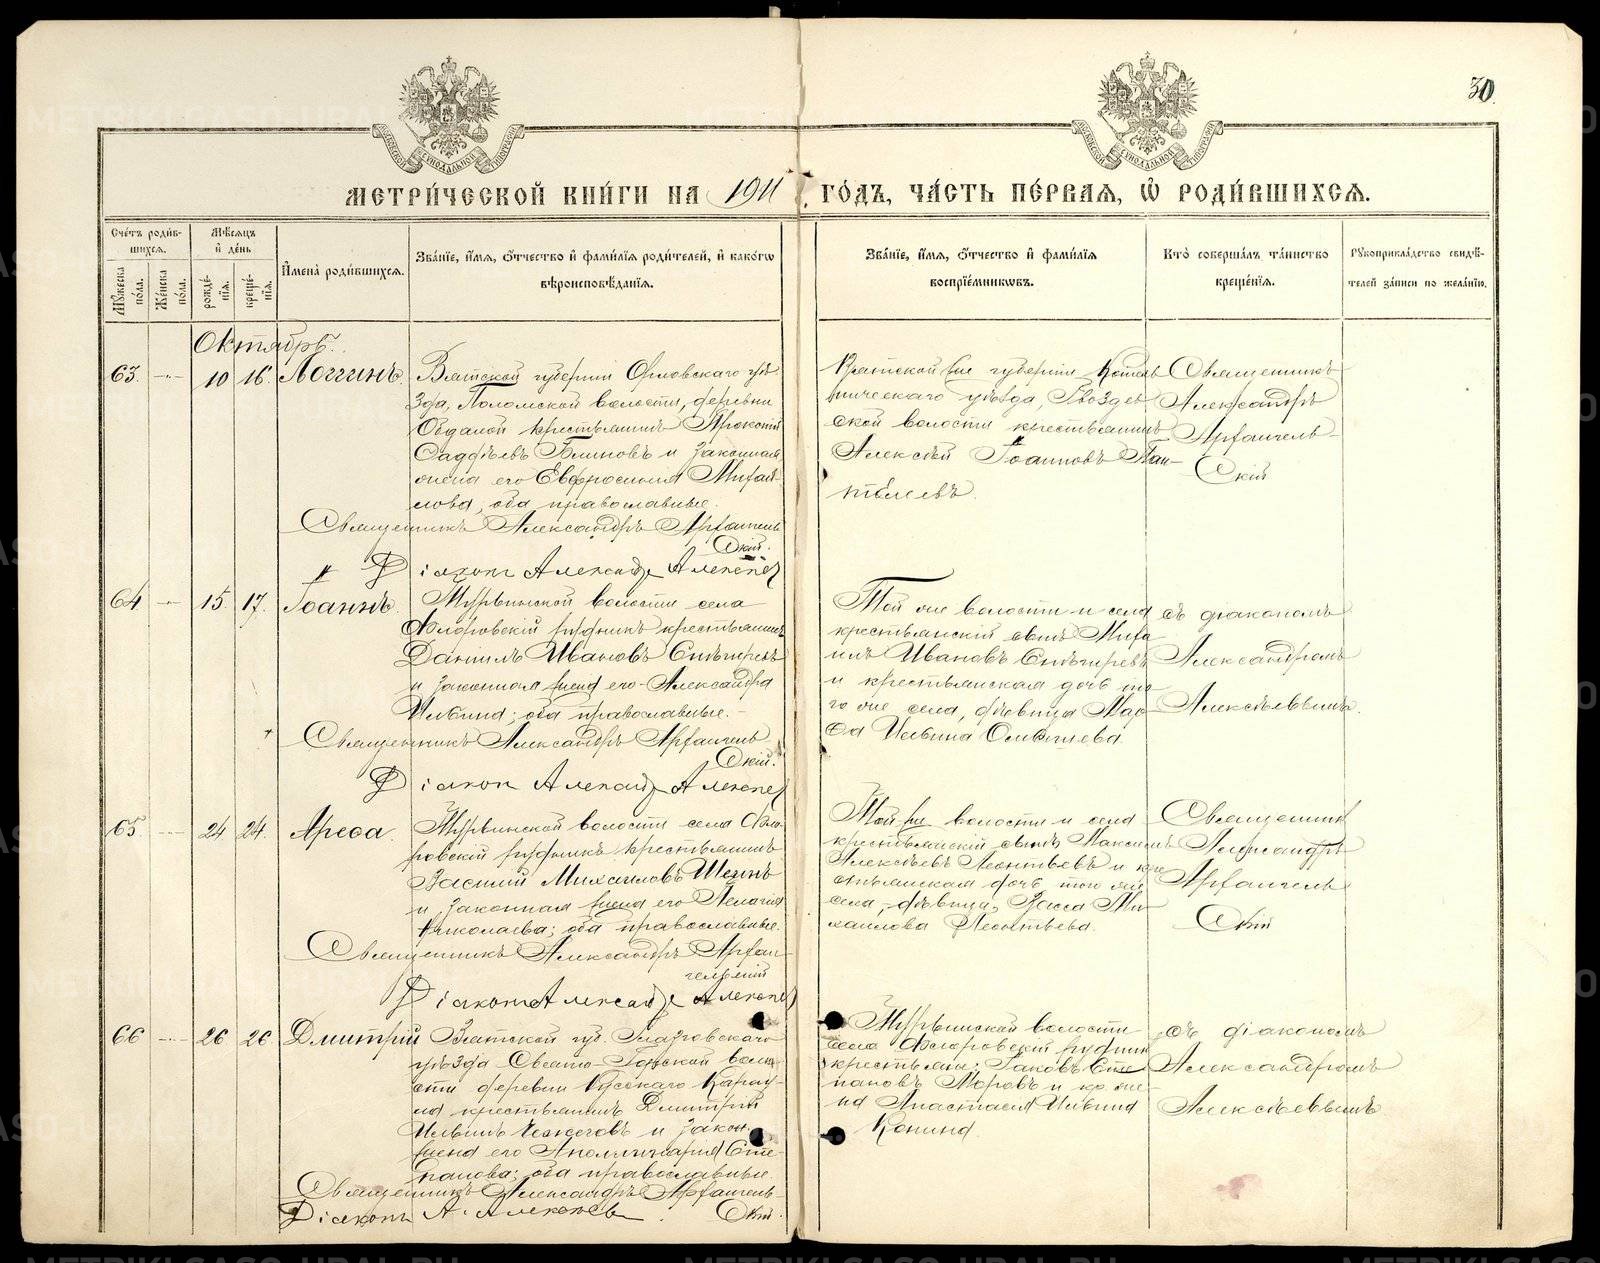 30
МЕТРИ́ЧЕСКОЙ КНИ́ГИ НА 1911 ГО́ДЪ, ЧА́СТЬ ПЕ́РВАЯ, Ѡ҆ РОДИ́ВШИХСЯ.
Сче́тъ роди́в-
шихся.
Мꙋ́жеска по́ла.
Же́нска по́ла.
Мѣ́сяцъ
и҆ де́нь
рожде́-
нїя.
креще́-
нїя.
И҆мена̀ роди́вшихся.
Зва́нїе, и҆́мя, ѻ҆́тчество и҆ фами́лїя роди́телей, и҆ како́гѡ
вѣроисповѣ́данїя.
Зва́нїе, и҆́мя, ѻ҆́тчество и҆ фами́лїя
воспрїе́мникѡвъ.
Кто̀ соверша́лъ та́инство
креще́нїя.
Рꙋкоприкла́дство свидѣ́-
телей за́писи по жела́нїю.
Октябрь.
63. 10 16. Логгинъ.
Вятской губерніи Орловскаго уѣ-
зда, Поломской волости, деревни
крестьянинъ Прокопій
Саддѣевъ Блиновъ и законная
жена его Евфросинія Михай-
лова, оба православные.
Священникъ Александръ Архангель-
скій.
Діаконъ Александръ Алексѣев
Вятской же губерніи Котель-
ническаго уѣзда, Гвоздев-
ской волости крестьянинъ
Алексѣй Іоанновъ Пан-
телеевъ.
Священникъ
Александръ
Архангель-
скій
64. 15. 17. Іоаннъ.
волости села
рудникъ крестьянинъ
Даніилъ Ивановъ Снѣгиревъ
и законная жена его Александра
Ильина; оба православные.
Священникъ Александръ Архангель-
скій.
Діаконъ Александръ Алексѣев
Той же волости и села
крестьянскій сынъ Миха-
илъ Ивановъ Снѣгиревъ
и крестьянская дочь то-
го же села, дѣвица Мар-
Ильина
съ діакономъ
Александромъ
Алексѣевымъ.
65. 24 24. Ареѳа.
волости села
рудникъ крестьянинъ
Василій Михаиловъ Шеинъ
и законная жена его Пелагія
Николаева; оба православные.
Священникъ Александръ Архан-
гельскій
Діаконъ Александръ Алексѣев
Той же волости и села
крестьянскій сынъ Максимъ
Алексѣевъ Леонтьевъ и кре-
стьянская дочь того же
села, дѣвица Ми-
хаилова Леонтьева.
Священникъ
Александръ
Архангель-
скій
66 26 26 Дмитрій
Вятской губ. Глазовскаго
уѣзда Свято-Горской воло-
сти деревни
крестьянинъ Дмитрій
Ильинъ и закон.
жена его Аполлинарія Сте-
панова; оба православные.
Священникъ Александръ Архангель-
скій.
Діаконъ А. Алексѣевъ
волости
села рудникъ
крестьян: Іаковъ Сте-
пановъ и
Анастасія Ильина
Конина.
съ діакономъ
Александромъ
Алексѣевымъ